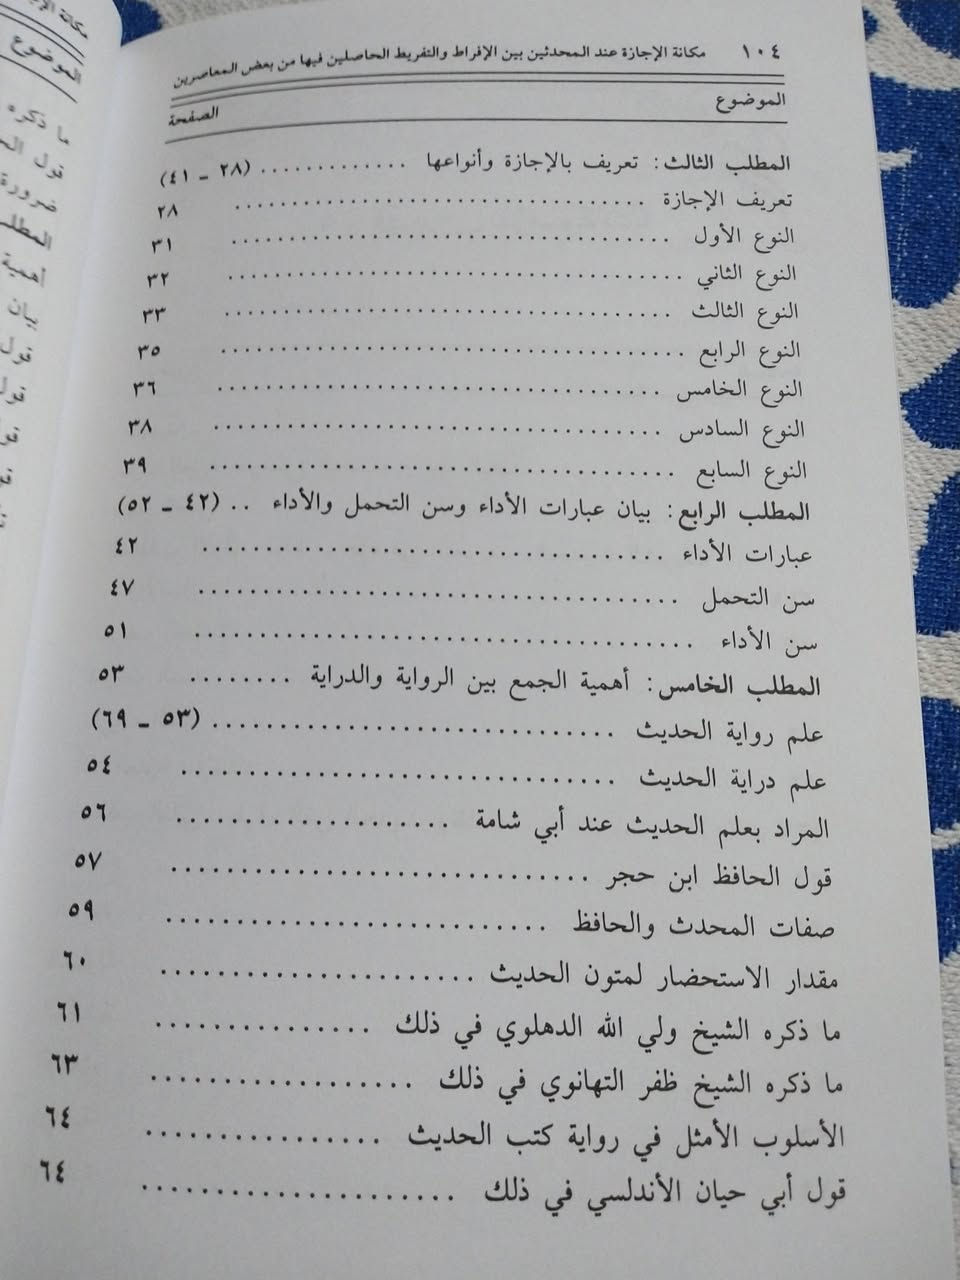 ١٠٤ مكانة الإجازة عند المحدثين بين الإفراط والتفريط الحاصلين فيها من بعض المعاصرين
الموضوع الصفحة
المطلب الثالث: تعريف بالإجازة وأنواعها ............ (٢٨ ـ ٤١)
تعريف الإجازة .................................. ٢٨
النوع الأول .................................... ٣١
النوع الثاني .................................... ٣٢
النوع الثالث .................................... ٣٣
النوع الرابع .................................... ٣٥
النوع الخامس .................................. ٣٦
النوع السادس .................................. ٣٨
النوع السابع .................................... ٣٩
المطلب الرابع: بيان عبارات الأداء وسن التحمل والأداء .. (٤٢ ـ ٥٢)
عبارات الأداء .................................. ٤٢
سن التحمل .................................... ٤٧
سن الأداء ...................................... ٥١
المطلب الخامس: أهمية الجمع بين الرواية والدراية ........ ٥٣
علم رواية الحديث ............................ (٥٣ ـ ٦٩)
علم دراية الحديث .............................. ٥٤
المراد بعلم الحديث عند أبي شامة .................. ٥٦
قول الحافظ ابن حجر ............................ ٥٧
صفات المحدث والحافظ .......................... ٥٩
مقدار الاستحضار لمتون الحديث .................. ٦٠
ما ذكره الشيخ ولي الله الدهلوي في ذلك ............ ٦١
ما ذكره الشيخ ظفر التهانوي في ذلك .............. ٦٣
الأسلوب الأمثل في رواية كتب الحديث .............. ٦٤
قول أبي حيان الأندلسي في ذلك .................. ٦٤
الموضوع
ما ذكره
ضرورة
بيان